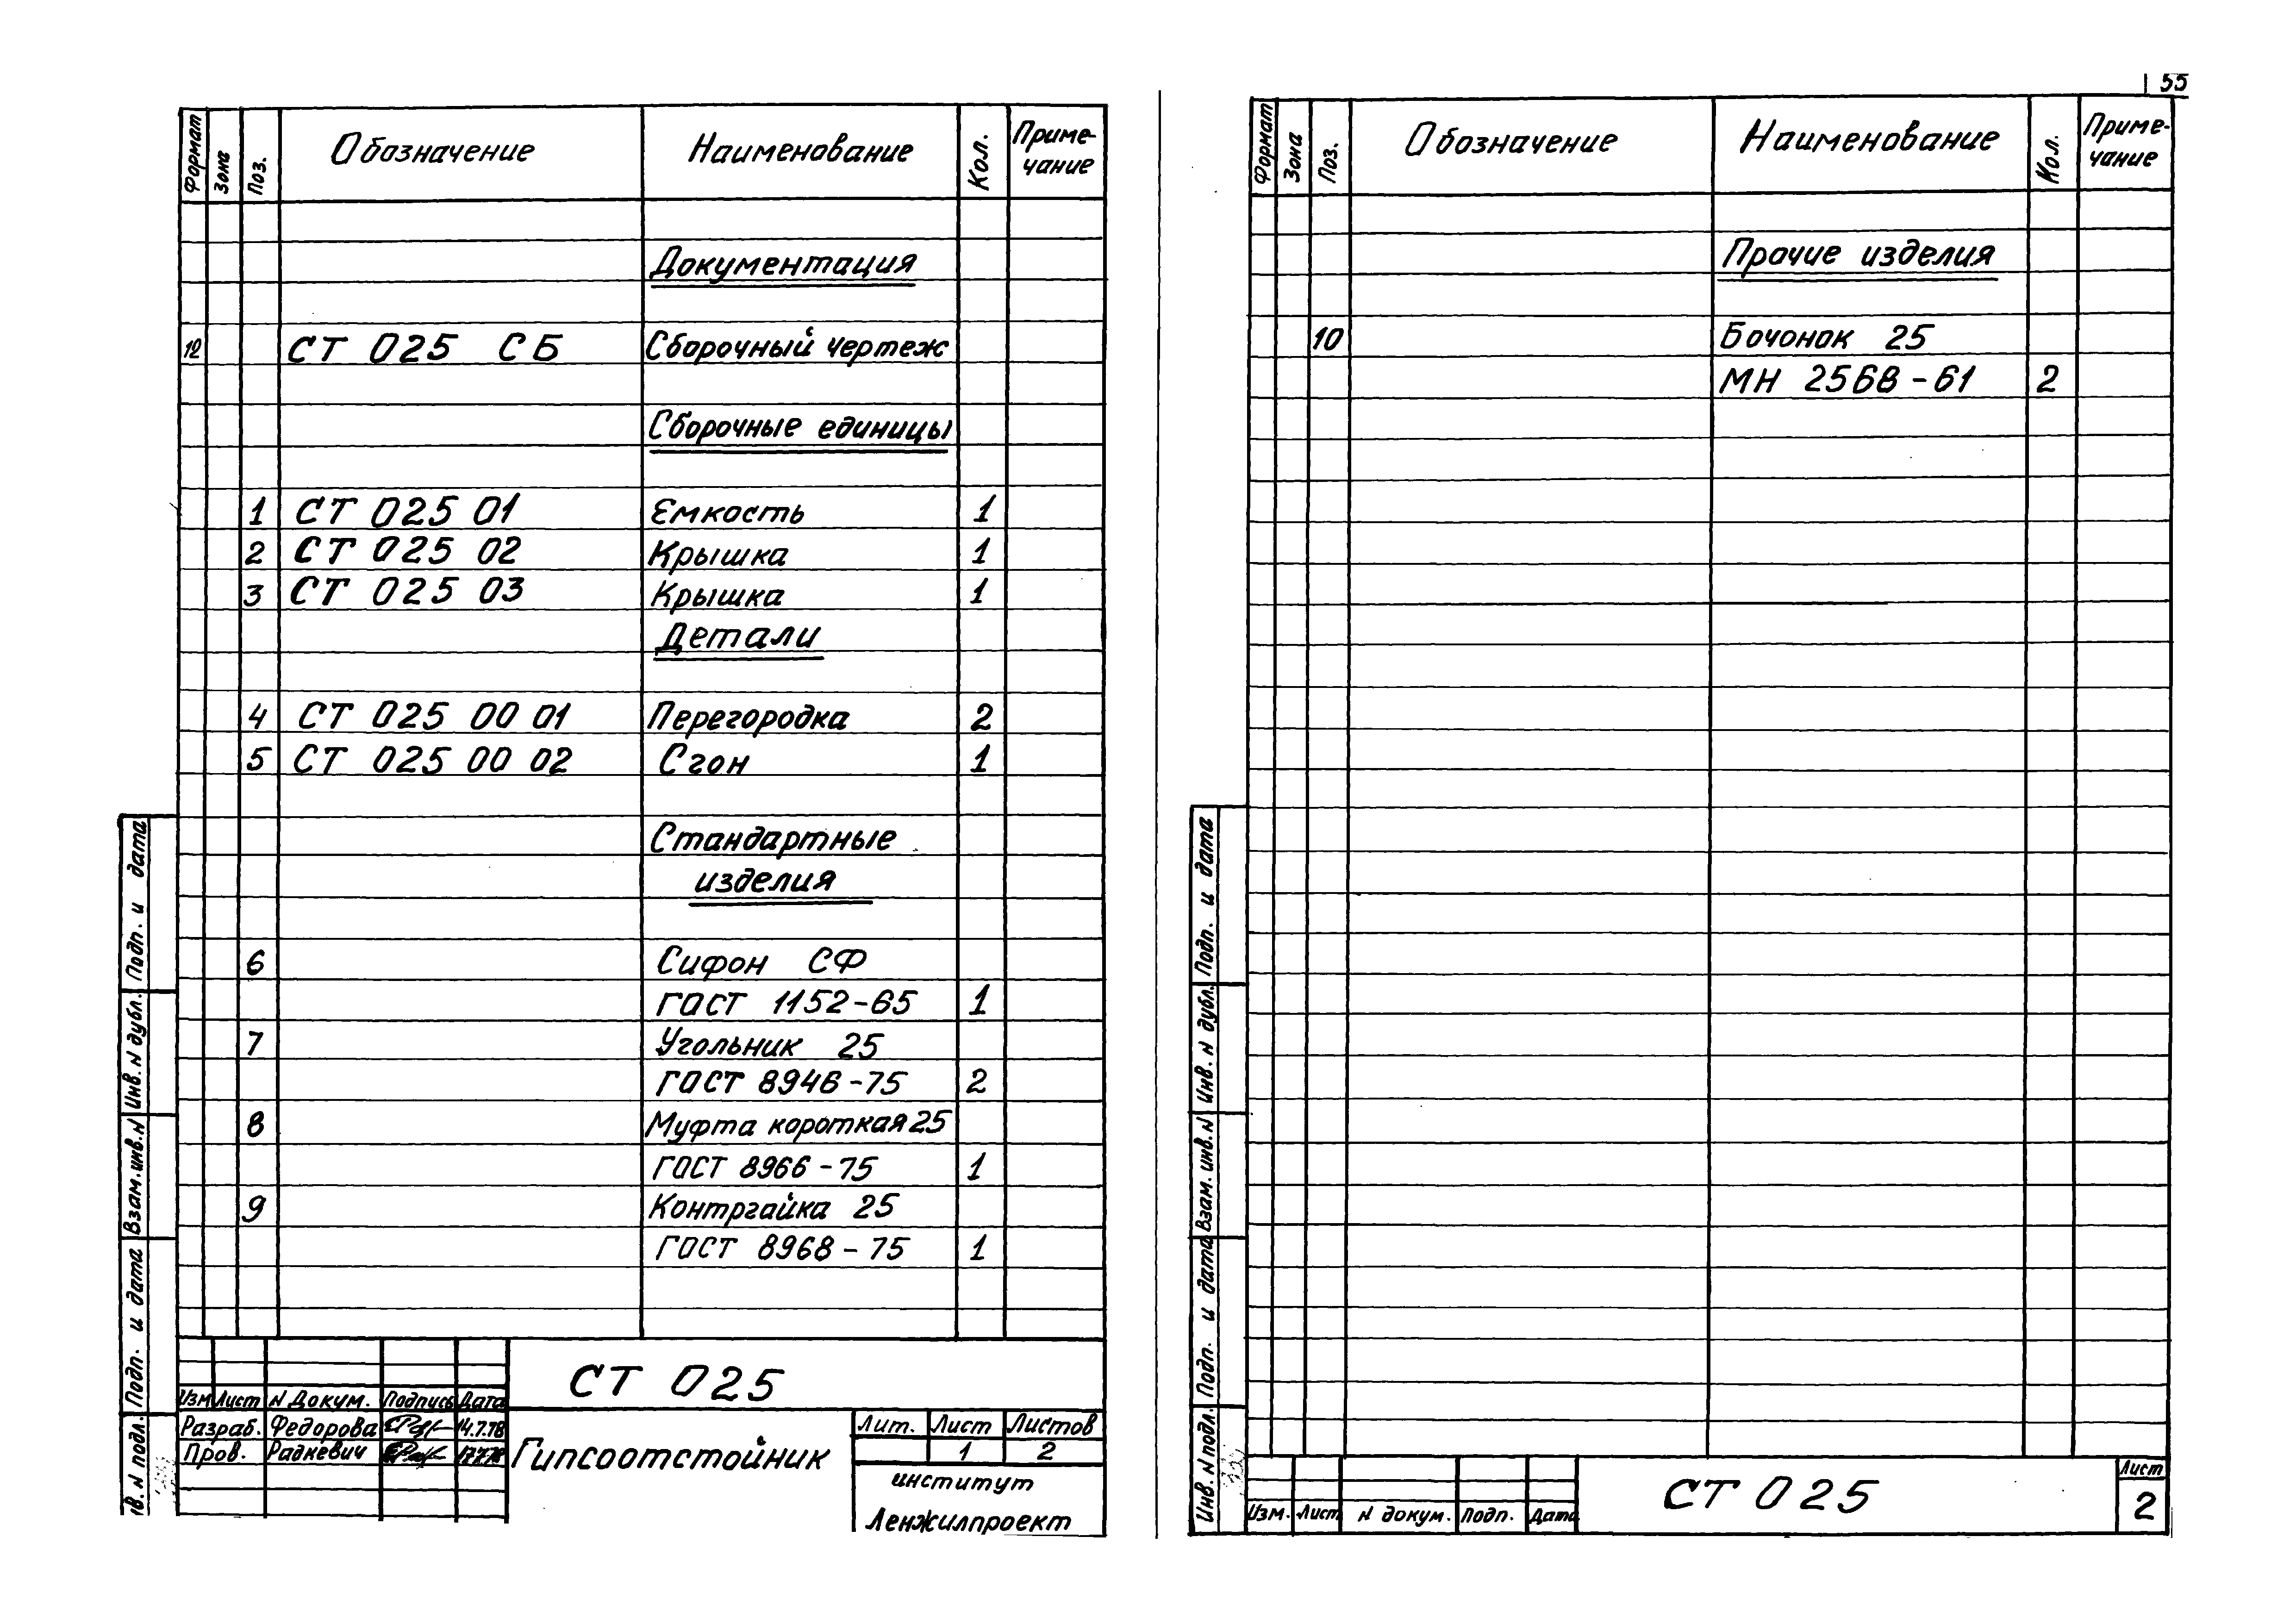 55
Формат Зона Поз. Обозначение Наименование Кол. Приме-
чание
Документация
12 СТ 025 СБ Сборочный чертеж
Сборочные единицы
1 СТ 025 01 Емкость 1
2 СТ 025 02 Крышка 1
3 СТ 025 03 Крышка 1
Детали
4 СТ 025 00 01 Перегородка 2
5 СТ 025 00 02 Сгон 1
Стандартные
изделия
6 Сифон СФ
ГОСТ 1152-65 1
7 Угольник 25
ГОСТ 8946-75 2
8 Муфта короткая 25
ГОСТ 8966-75 1
9 Контргайка 25
ГОСТ 8968-75 1
Подп. и дата
Инв. N дубл.
Взам. инв. N
Подп. и дата
ив. N подл.
СТ 025
Изм Лист N Докум. Подпись Дата
Разраб. Федорова 14.7.78
Пров. Радкевич
Гипсоотстойник
Лит. Лист Листов
1 2
институт
Ленжилпроект
Формат Зона Поз. Обозначение Наименование Кол. Приме-
чание
Прочие изделия
10 Бочонок 25
МН 2568-61 2
Подп. и дата
Инв. N дубл.
Взам. инв. N
Подп. и дата
Инв. N подл.
Изм. Лист N докум. Подп. Дата
СТ 025
Лист
2